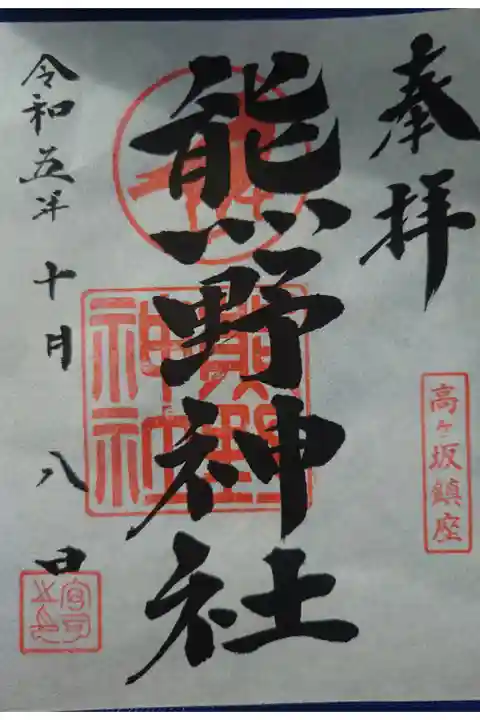 奉拝
高ヶ坂鎮座
熊野神社
熊野
神社
令和五年十月八日
宮司
之印